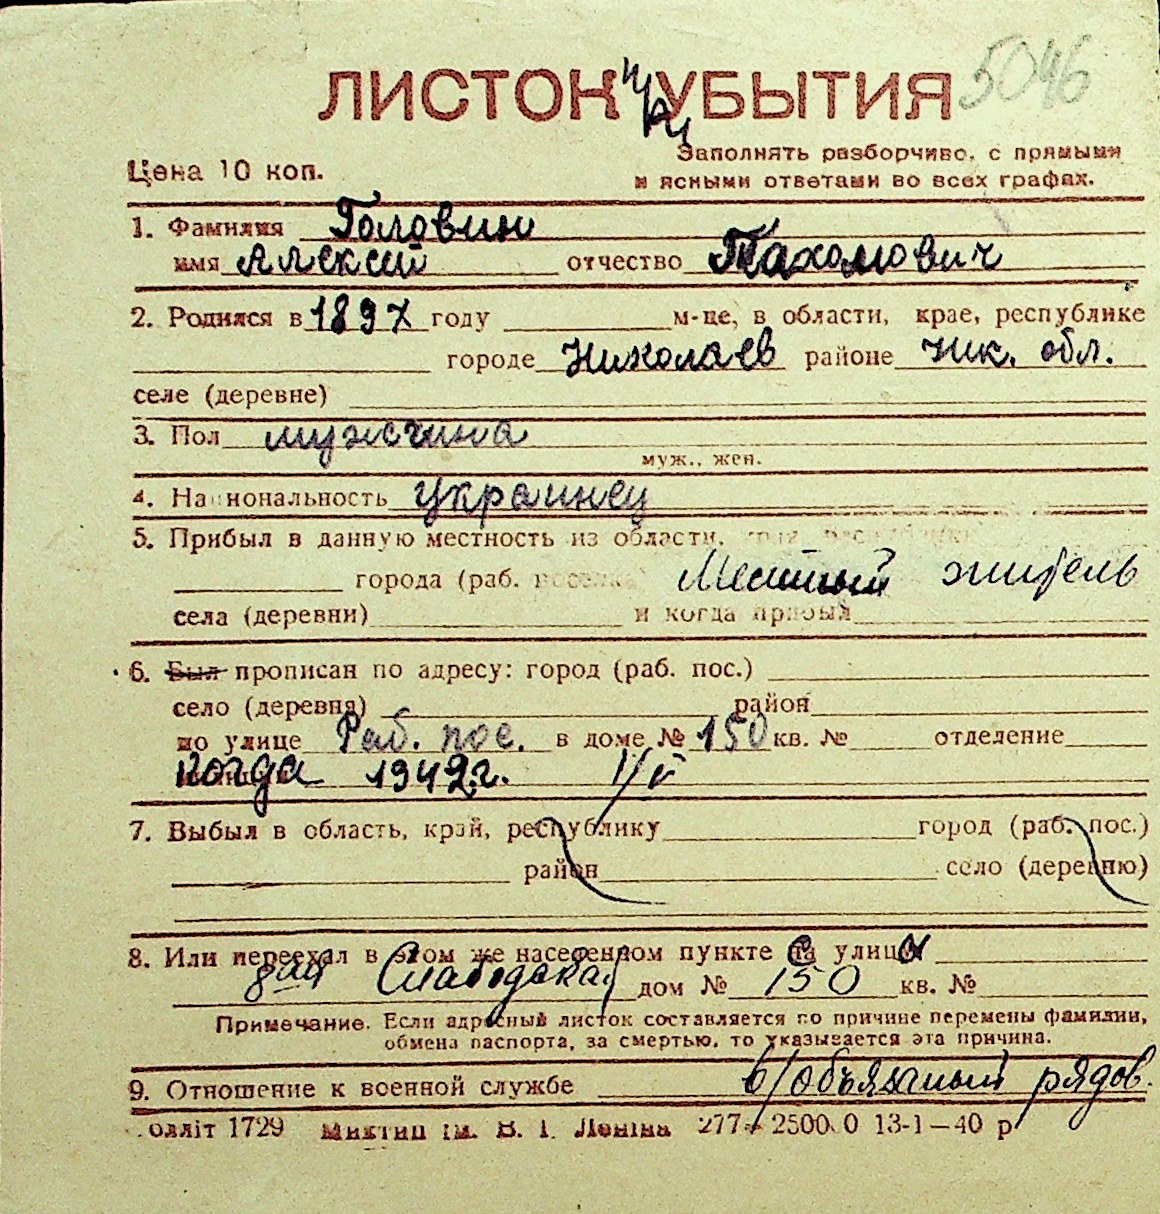 5046
ЛИСТОК УБЫТИЯ
Цена 10 коп.
Заполнять разборчиво, с прямыми
и ясными ответами во всех графах.
1. Фамилия Головин
имя Алексей отчество Пахомович
2. Родился в 1897 году м-це, в области, крае, республике
городе Николаев районе Ник. обл.
селе (деревне)
3. Пол мужчина
муж., жен.
4. Национальность украинец
5. Прибыл в данную местность из области,
города (раб. Местный житель
села (деревни) и когда прибыл
6. Был прописан по адресу: город (раб. пос.)
село (деревня) район
по улице Раб. пос. в доме № 150 кв. № отделение
когда 1942 г.
7. Выбыл в область, край, республику город (раб. пос.)
район село (деревню)
8. Или переехал в этом же населенном пункте с улицы
8ая Слободская дом № 150 кв. №
Примечание. Если адресный листок составляется по причине перемены фамилии,
обмена паспорта, за смертью, то указывается эта причина.
9. Отношение к военной службе в/обязаный рядов.
олліт 1729 ім. В. І. Леніна 277 — 25000 13-1—40 р